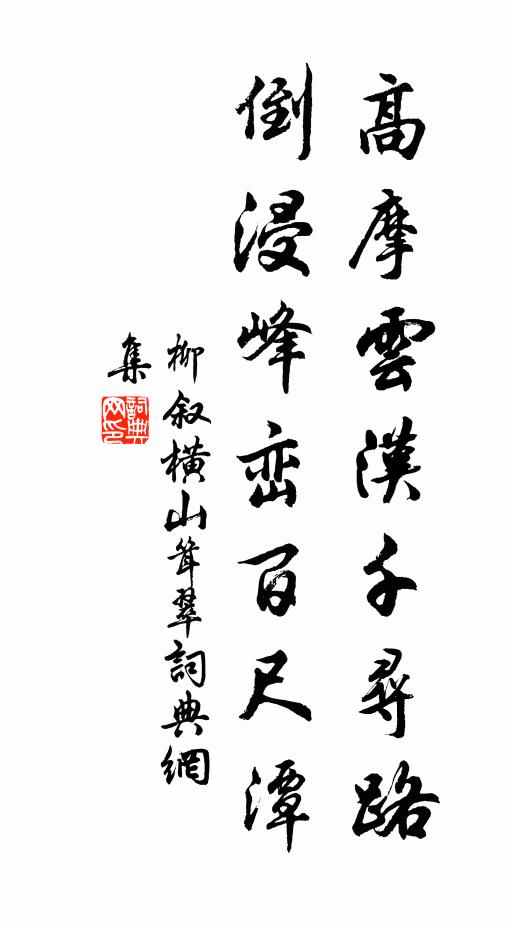 高摩雲漢千尋路
倒浸峰峦百尺潭
柳叙橫山耸翠詞典網
集
詞典
网印